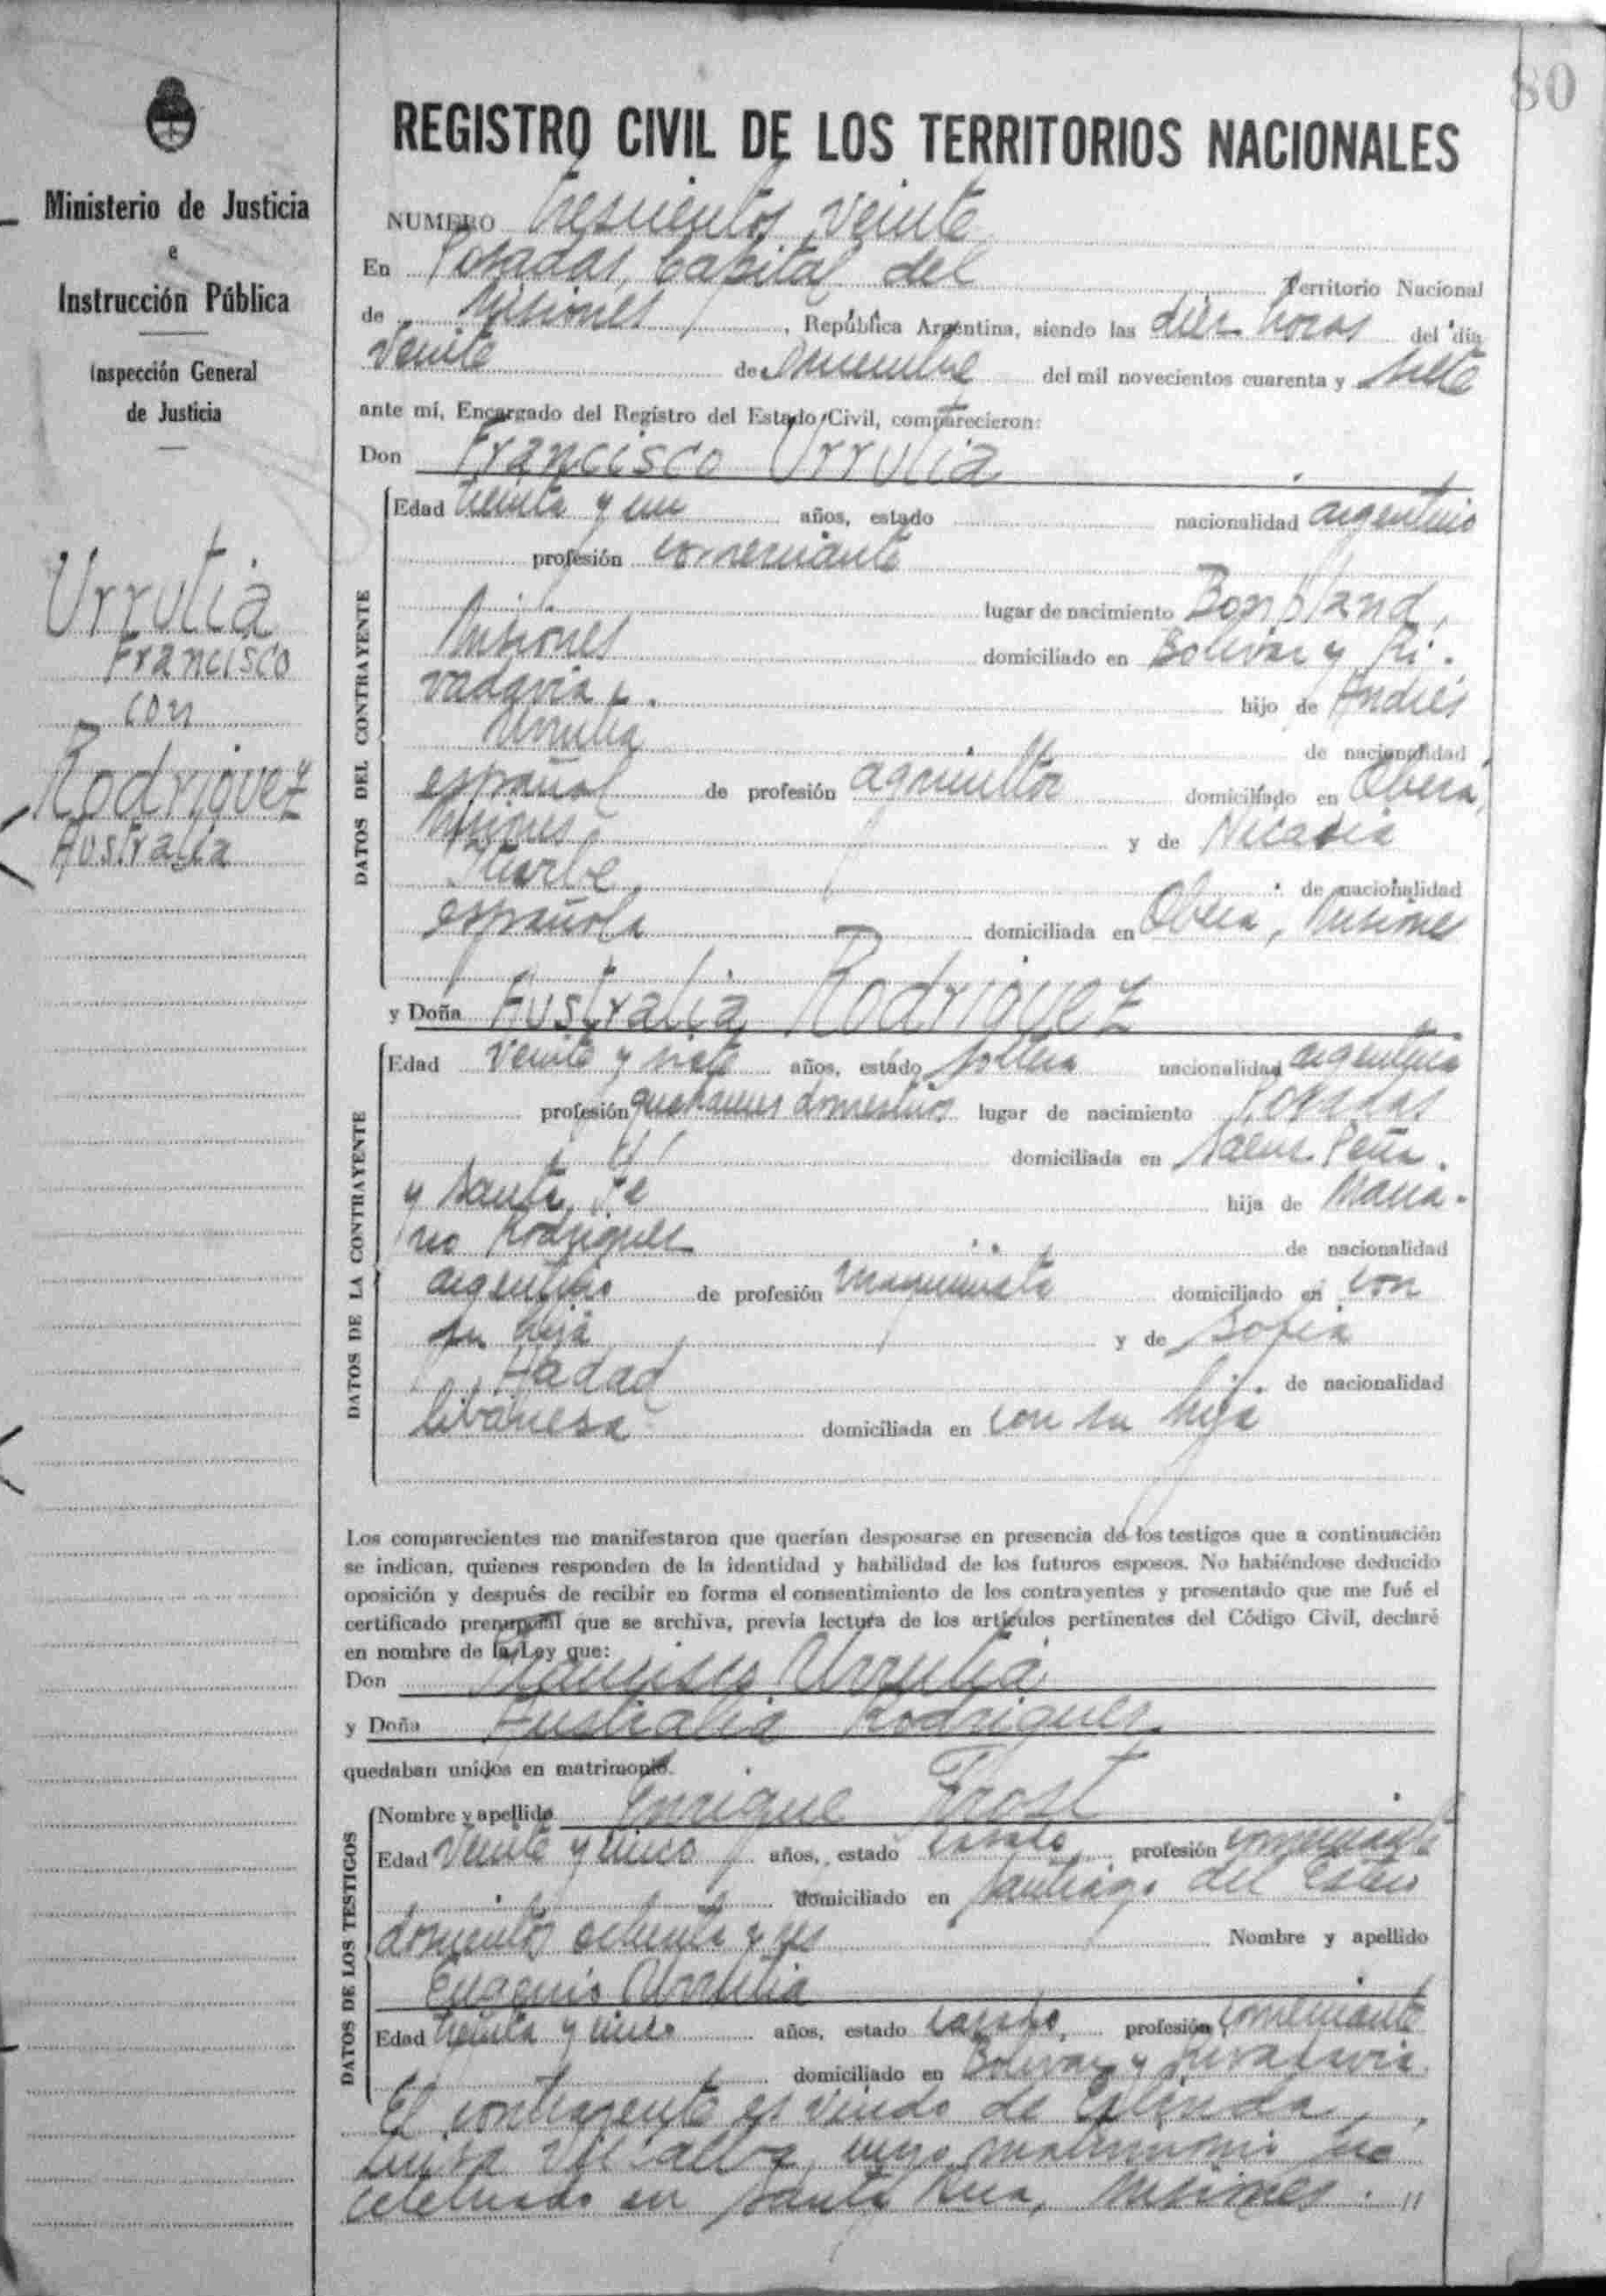 80
Ministerio de Justicia
e
Instrucción Pública
Inspección General
de Justicia
Urrutia
Francisco
con
Rodriguez
Australia
REGISTRO CIVIL DE LOS TERRITORIOS NACIONALES
NUMERO Trescientos veinte
En Posadas, Capital del Territorio Nacional
de Misiones, República Argentina, siendo las diez horas del día
veinte de del mil novecientos cuarenta y siete
ante mí, Encargado del Registro del Estado Civil, comparecieron:
Don Francisco Urrutia
Edad treinta y un años, estado nacionalidad argentino
profesión comerciante
lugar de nacimiento Bonpland,
Misiones domiciliado en Bolivar y Ri-
vadavia hijo de Andrés
Urrutia de nacionalidad
español de profesión agricultor domiciliado en Oberá,
Misiones y de Nicasia
Iriarte de nacionalidad
española domiciliada en Oberá, Misiones
y Doña Australia Rodriguez
Edad veinte y siete años, estado soltera nacionalidad argentina
profesión quehaceres domésticos lugar de nacimiento Posadas
domiciliada en Saenz Peña
y Santa Fé hija de Maria-
no Rodriguez de nacionalidad
argentino de profesión maquinista domiciliado en con
su hija y de Sofia
Hadad de nacionalidad
libanesa domiciliada en con su hija
DATOS DEL CONTRAYENTE
DATOS DE LA CONTRAYENTE
Los comparecientes me manifestaron que querían desposarse en presencia de los testigos que a continuación
se indican, quienes responden de la identidad y habilidad de los futuros esposos. No habiéndose deducido
oposición y después de recibir en forma el consentimiento de los contrayentes y presentado que me fué el
certificado prenupcial que se archiva, previa lectura de los artículos pertinentes del Código Civil, declaré
en nombre de la Ley que:
Don Francisco Urrutia
y Doña Australia Rodriguez
quedaban unidos en matrimonio.
DATOS DE LOS TESTIGOS
Nombre y apellido Enrique Frost
Edad veinte y cinco años, estado casado, profesión comerciante
domiciliado en Santiago del Estero
doscientos ochenta y seis Nombre y apellido
Eugenio Urrutia
Edad treinta y cinco años, estado casado, profesión comerciante
domiciliado en Bolivar y Rivadavia
El contrayente es viudo de
Luisa cuyo matrimonio fue
celebrado en Santa Ana, Misiones.